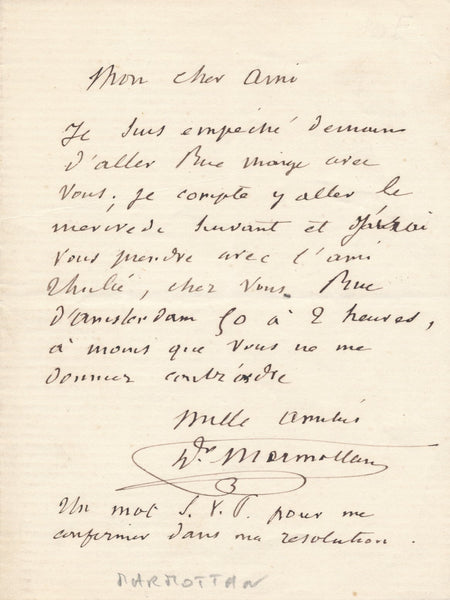 Mon cher Ami
Je suis empêché demain
d'aller Rue Monge avec
vous; je compte y aller le
mercredi suivant et j'irai
vous prendre avec l'ami
Thulié, chez vous Rue
d'amsterdam 50 à 2 heures,
à moins que vous ne me
donniez contrordre
Mille amitiés
Dr Marmottan
Un mot S.V.P. pour me
confirmer dans ma resolution.
MARMOTTAN